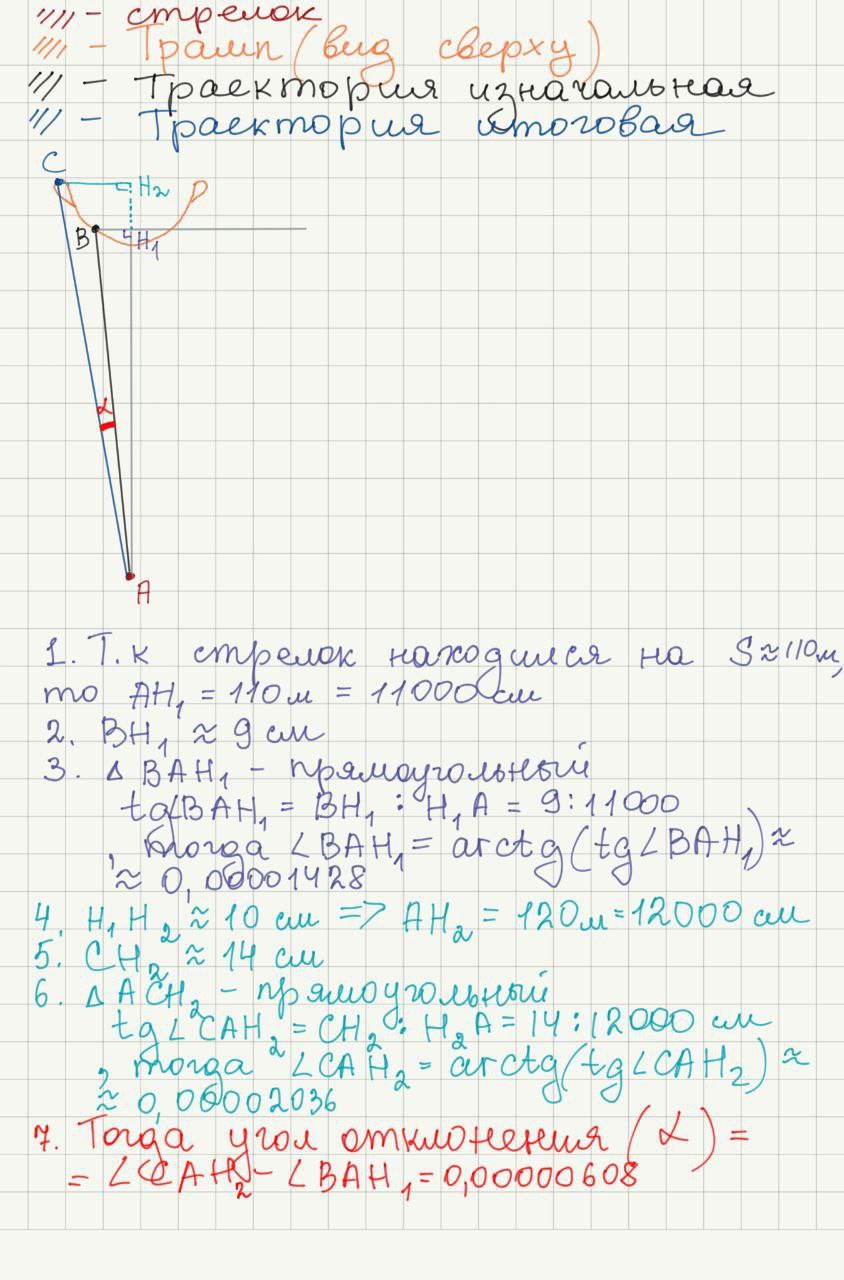 - стрелок
- Трамп (вид сверху)
- Траектория изначальная
- Траектория итоговая
C
H₂
B
H₁
α
A
1. Т.к стрелок находился на S≈110м,
то AH₁ = 110м = 11000 см
2. BH₁ ≈ 9 см
3. Δ BAH₁ - прямоугольный
tg∠BAH₁ = BH₁ : H₁A = 9:11000
, тогда ∠BAH₁ = arctg(tg∠BAH₁) ≈
≈ 0,00001428
4. H₁H₂ ≈ 10 см => AH₂ = 120м = 12000 см
5. CH₂ ≈ 14 см
6. Δ ACH₂ - прямоугольный
tg∠CAH₂ = CH₂ : H₂A = 14:12000 см
, тогда ∠CAH₂ = arctg(tg∠CAH₂) ≈
≈ 0,00002036
7. Тогда угол отклонения (α) =
= ∠CAH₂ - ∠BAH₁ = 0,00000608